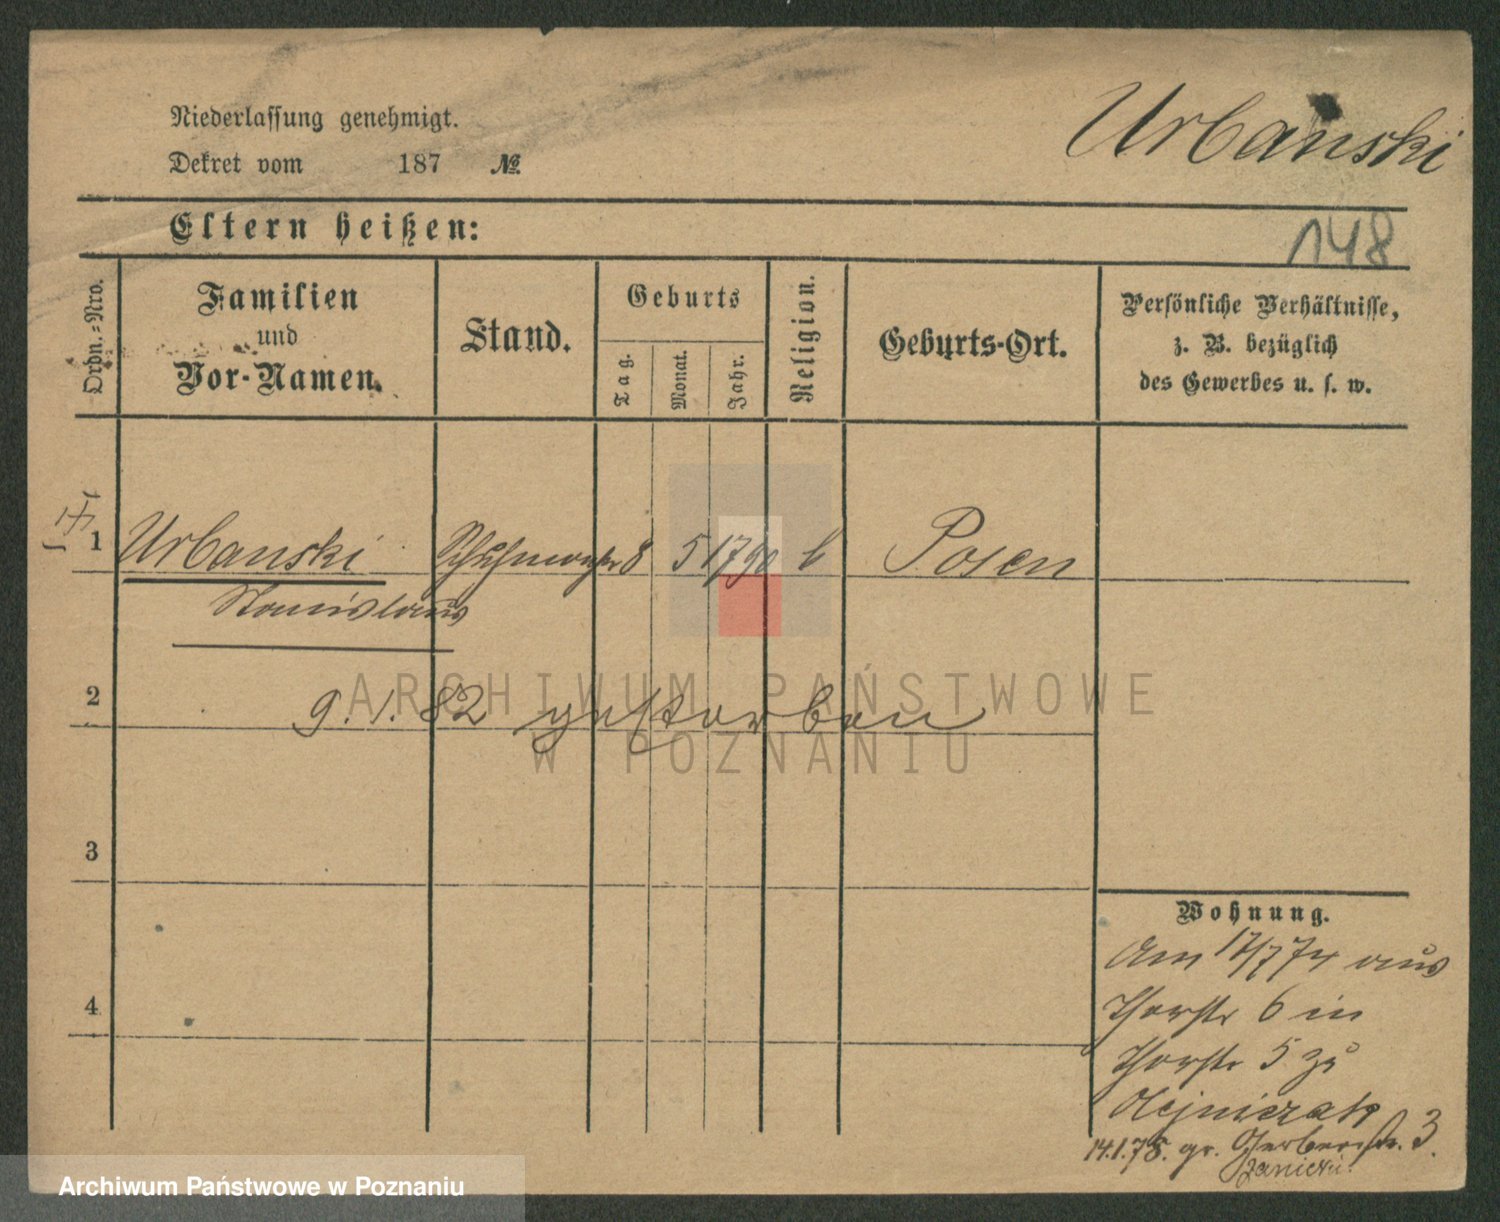 Niederlassung genehmigt.
Urbanski
Dekret vom 187 №
Eltern heißen:
148
Ordn.-Nro.
Familien
und
Vor-Namen.
Stand.
Geburts
Tag.
Monat.
Jahr.
Religion.
Geburts-Ort.
Persönliche Verhältnisse,
z. B. bezüglich
des Gewerbes u. s. w.
1 Urbanski Schuhmacher 8 5 1790 k Posen
Stanislaus
2
9. 1. 82 gestorben
ARCHIWUM PAŃSTWOWE
W POZNANIU
3
4
Wohnung.
Am 17/7 74 aus
Thorstr 6 in
Thorstr 5 zu
Olejniczak
14.1.78. gr. Gerberstr. 3.
Janicki.
Archiwum Państwowe w Poznaniu